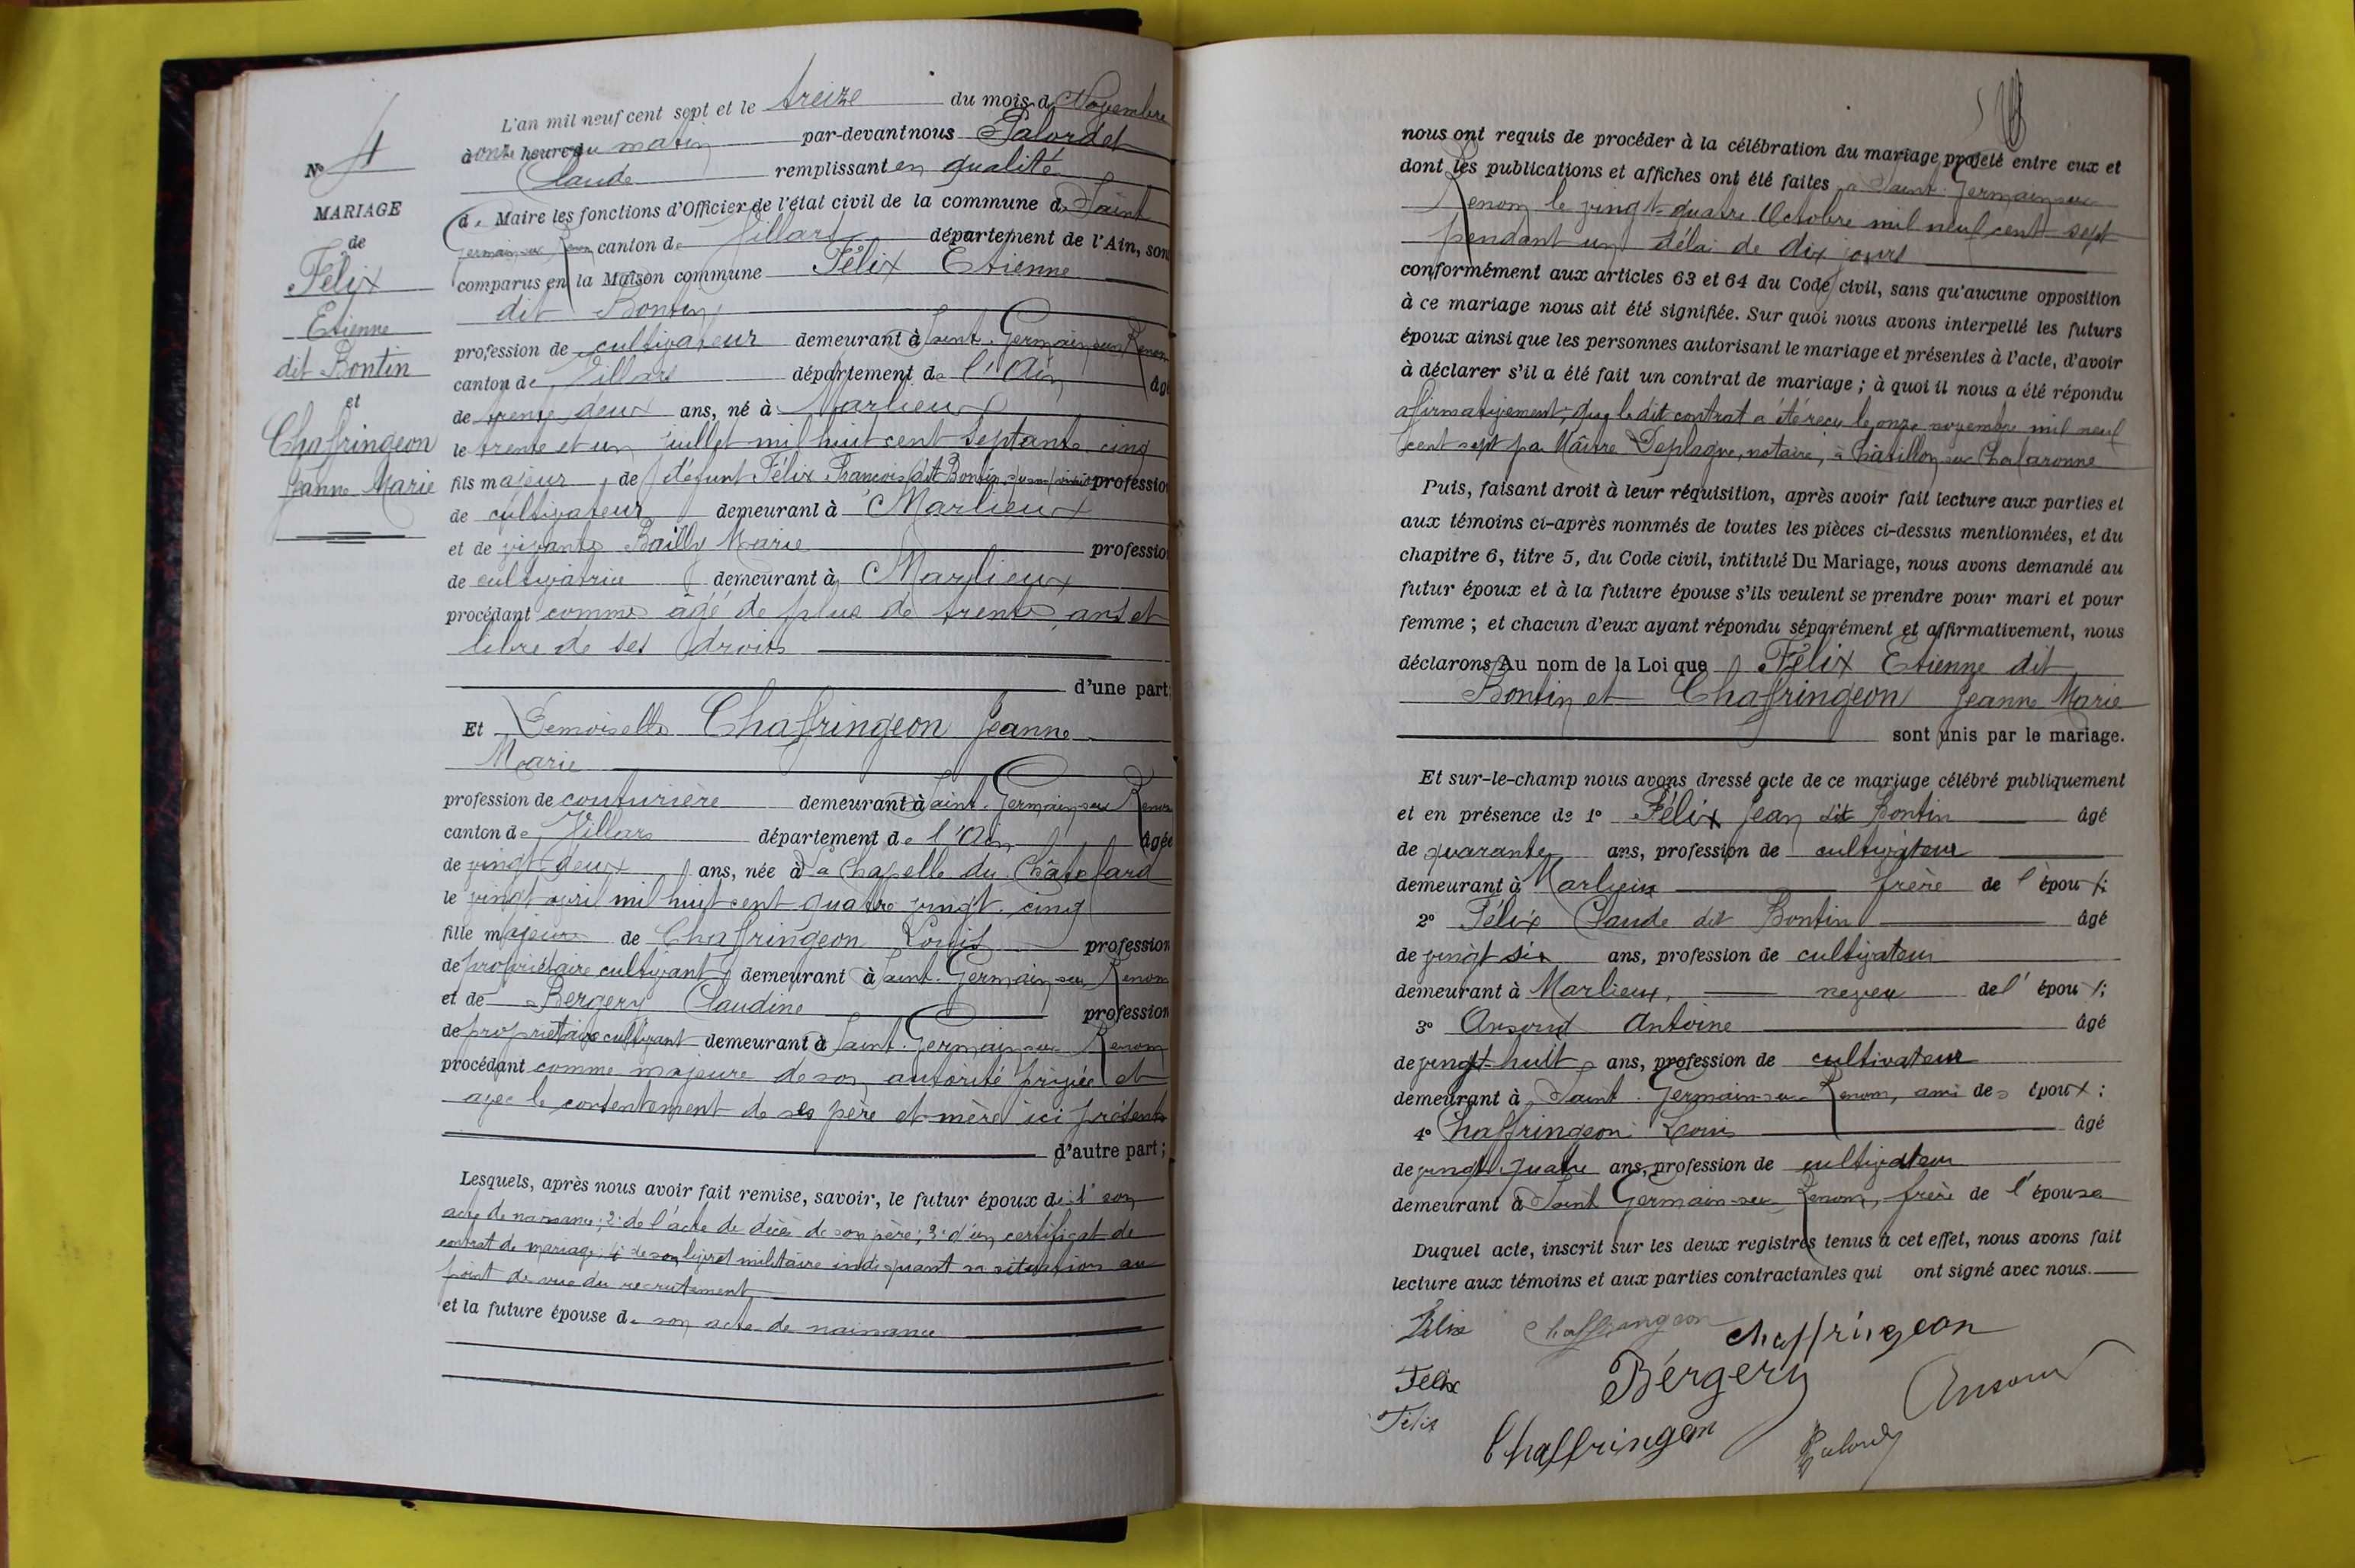 N° 4
MARIAGE
de
Félix
Etienne
dit Bontin
et
Chaffringeon
Jeanne Marie
L'an mil neuf cent sept et le treize du mois de Novembre
à onze heures du matin par-devant nous Palordet
Claude remplissant en qualité
de Maire les fonctions d'Officier de l'état civil de la commune de Saint
Germain sur Renom canton de Villars département de l'Ain, sont
comparus en la Maison commune Félix Etienne
dit Bontin
profession de cultivateur demeurant à Saint-Germain sur Renom
canton de Villars département de l'Ain âgé
de trente deux ans, né à Marlieux
le trente et un juillet mil huit cent septante cinq
fils majeur, de défunt Félix François dit Bontin profession
de cultivateur demeurant à Marlieux
et de vivante Bailly Marie profession
de cultivatrice demeurant à Marlieux
procédant comme âgé de plus de trente ans et
libre de ses droits
d'une part;
Et Demoiselle Chaffringeon Jeanne
Marie
profession de couturière demeurant à Saint-Germain sur Renom
canton de Villars département de l'Ain âgée
de vingt-deux ans, née à La Chapelle du Châtelard
le vingt avril mil huit cent quatre vingt-cinq
fille majeure de Chaffringeon Louis profession
de propriétaire cultivant demeurant à Saint-Germain sur Renom
et de Bergery Claudine profession
de propriétaire cultivant demeurant à Saint-Germain sur Renom
procédant comme majeure de son autorité privée et
avec le consentement de ses père et mère ici présents
d'autre part;
Lesquels, après nous avoir fait remise, savoir, le futur époux de 1° son
acte de naissance; 2° de l'acte de décès de son père; 3° d'un certificat de
contrat de mariage; 4° de son livret militaire indiquant sa situation au
point de vue du recrutement
et la future épouse de son acte de naissance
nous ont requis de procéder à la célébration du mariage projeté entre eux et
dont les publications et affiches ont été faites à Saint-Germain sur
Renom le vingt-quatre Octobre mil neuf cent sept
pendant un délai de dix jours
conformément aux articles 63 et 64 du Code civil, sans qu'aucune opposition
à ce mariage nous ait été signifiée. Sur quoi nous avons interpellé les futurs
époux ainsi que les personnes autorisant le mariage et présentes à l'acte, d'avoir
à déclarer s'il a été fait un contrat de mariage; à quoi il nous a été répondu
afirmativement, que le dit contrat a été reçu le onze novembre mil neuf
cent sept par Maître Deplagne, notaire, à Châtillon sur Chalaronne
Puis, faisant droit à leur réquisition, après avoir fait lecture aux parties et
aux témoins ci-après nommés de toutes les pièces ci-dessus mentionnées, et du
chapitre 6, titre 5, du Code civil, intitulé Du Mariage, nous avons demandé au
futur époux et à la future épouse s'ils veulent se prendre pour mari et pour
femme; et chacun d'eux ayant répondu séparément et affirmativement, nous
déclarons Au nom de la Loi que Félix Etienne dit
Bontin et Chaffringeon Jeanne Marie
sont unis par le mariage.
Et sur-le-champ nous avons dressé acte de ce mariage célébré publiquement
et en présence de 1° Félix Jean dit Bontin âgé
de quarante ans, profession de cultivateur
demeurant à Marlieux frère de l'époux;
2° Félix Claude dit Bontin âgé
de vingt six ans, profession de cultivateur
demeurant à Marlieux, neveu de l'époux;
3° Ansoud Antoine âgé
de vingt-huit ans, profession de cultivateur
demeurant à Saint-Germain sur Renom, ami des époux;
4° Chaffringeon Louis âgé
de vingt-quatre ans, profession de cultivateur
demeurant à Saint Germain sur Renom, frère de l'épouse
Duquel acte, inscrit sur les deux registres tenus à cet effet, nous avons fait
lecture aux témoins et aux parties contractantes qui ont signé avec nous.
Félix Chaffrangeon Chaffringeon
Felix Bergery Ansoud
Félix Chaffringeon Palordet